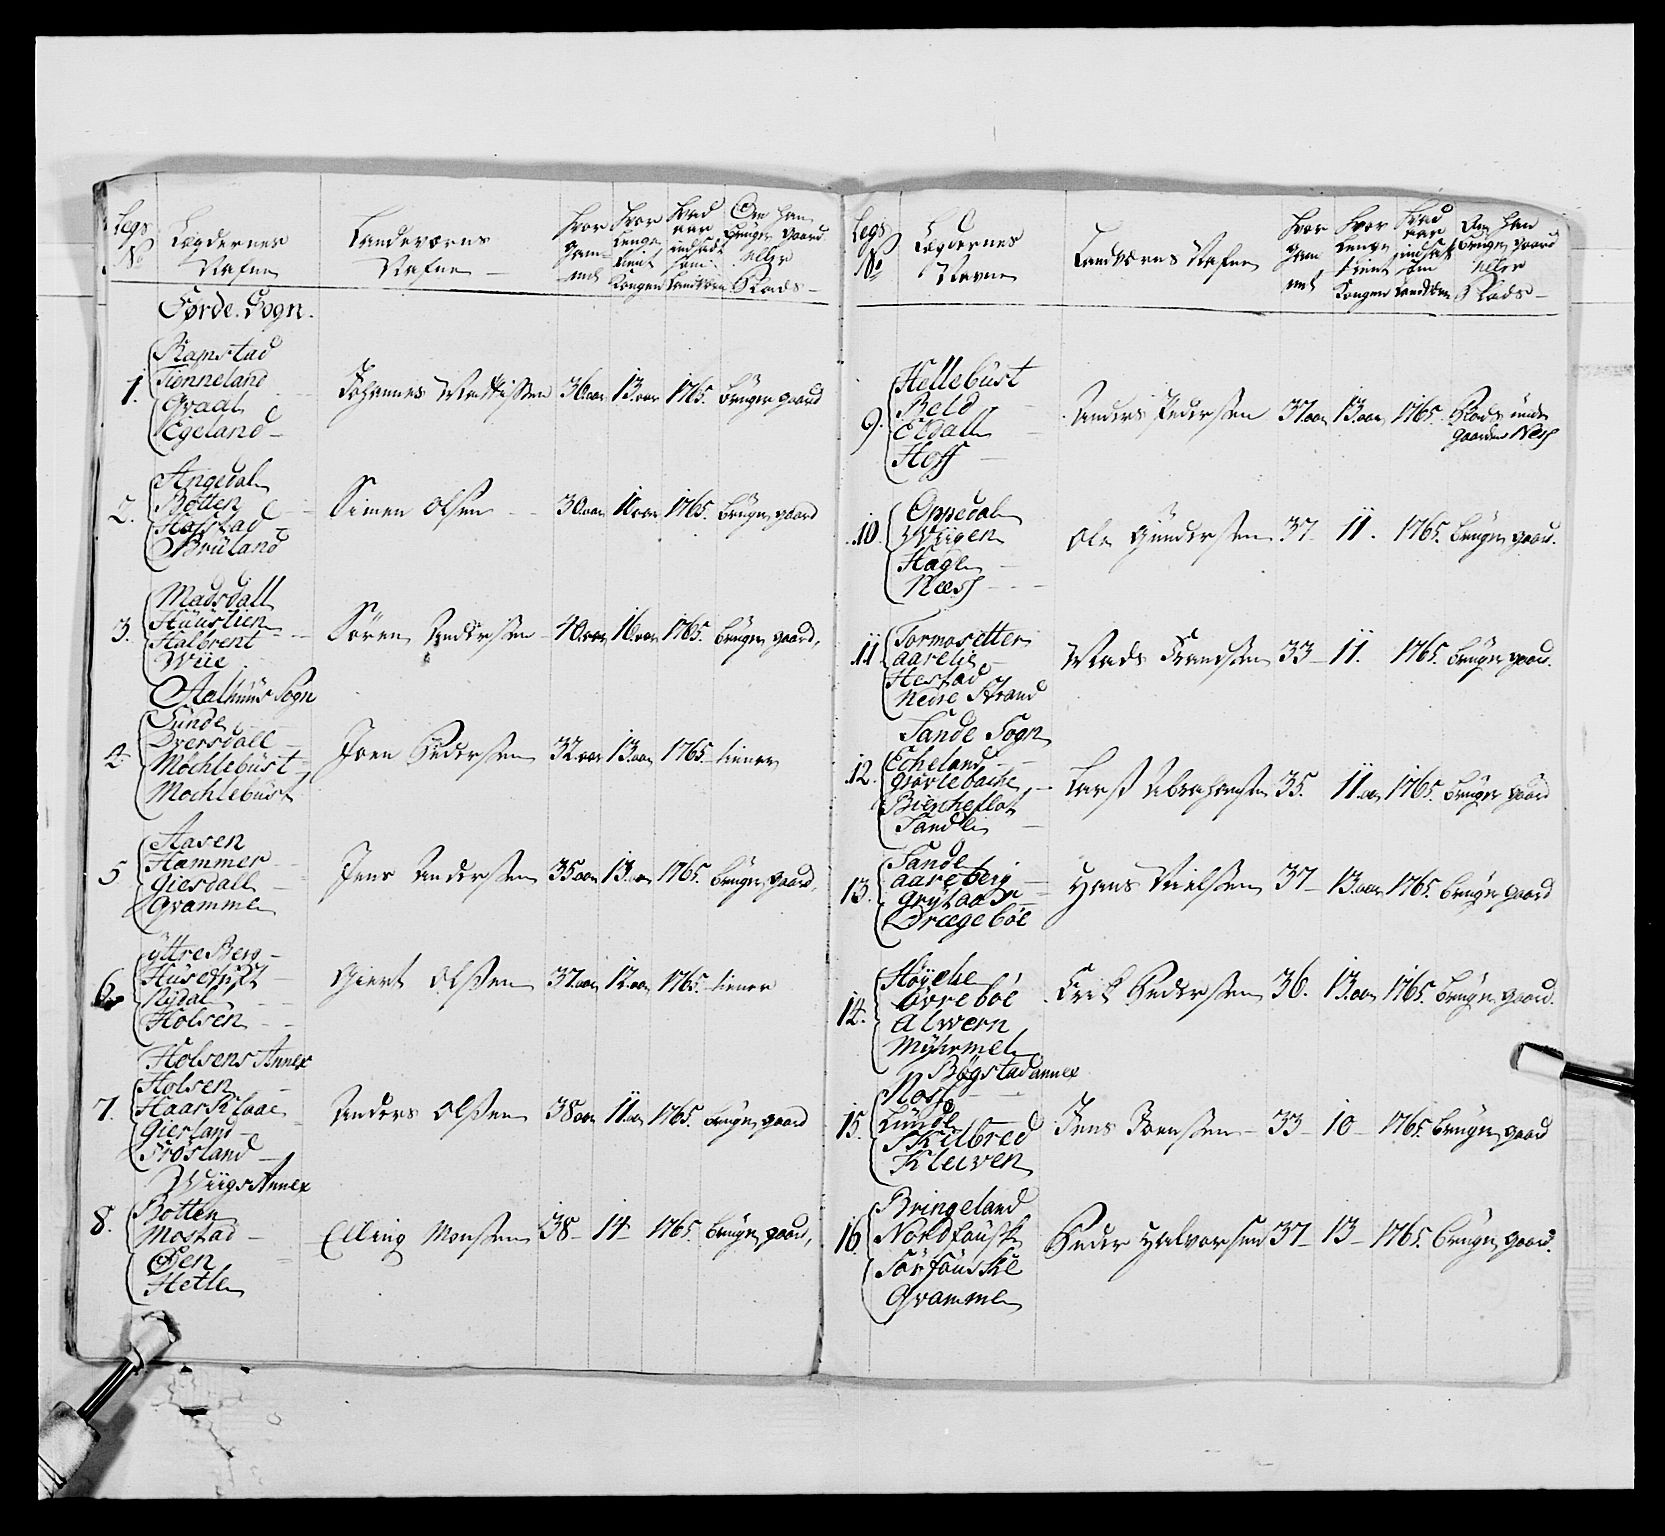 Legs No
Legdernes Nafne
Landeværns Nafne
Hvor Gammel
Hvor Lenge tient Kongen
Hvad aar indsadt som Landværn
Om han bruger Gaard eller Plads
Førde Sogn.
1. Ramstad
Tenneland
Qvaal
Egeland
Johannes Mattissen 36 aar 13 aar 1765. bruger gaard
2. Angedal
Botten
Hafstad
Bruland
Simen Olsen 30 aar 10 aar 1765. bruger gaard
3. Madsdall
Huustien
Halbrent
Wiie
Sören Andersen 40 aar 16 aar 1765. bruger gaard.
Aalhuus Sogn
4. Sunde
Dvergsdall
Mochlebust
Mochlebust
Joen Pedersen 32 aar 13 aar 1765. tiener
5 Aasen
Hammer
Giesdall
Qvamme
Jens Andersen 35 aar 13 aar 1765. bruger gaard.
6 ÿttre Berg
Husetuft
Nÿdal
Holsen
Giert Olsen 37 aar 12 aar 1765. tiener
Holsens Annex
7. Holsen
Haarklaae
Gierland
Frøsland
Anders Olsen 38 aar 11 aar 1765. bruger gaard
Wiigs Annex
8. Botten
Mostad
Øen
Hetle
Elling Monsen 38 14 1765. bruger gaard.
Legs No
Legdernes Navne
Landværns Nafne
Hvor Gammel
Hvor Lenge tient Kongen
Hvad aar indsat som Landværn
Om han bruger gaard eller Plads
9. Hellebust
Beld
Eldall
Hoff
Anders Pedersen 37 aar 13 aar 1765. Plads under gaarden Nes
10. Oppedal
Wiigen
Hage
Næss
Ole Gundersen 37 11. 1765. bruger gaard.
11. Tormosetter
Aarelie
Hestad
Nedre Strand
Mads Frandsen 33 11. 1765. bruger gaard.
Sande Sogn
12. Echeland
Gravlebache
Biercheflot
Sandli
Lars Abrahamsen 35. 11 aar 1765. bruger gaard
13. Sande
Aareberg
Grÿtaas
Drægebøe
Hans Nielsen 37 13 aar 1765. bruger gaard
14. Høÿche
Øvrebøe
Alwern
Mÿhrmel
Erik Pedersen 36. 13 aar 1765. bruger gaard.
Bøgstad annex
15. Moss
Lunde
Skilbred
Kleiven
Jens Joensen 33 10 1765. bruger gaard
16. Bringeland
Nordfousk
Sörfouske
Qvamme
Peder Halvorsen 37 13 1765. bruger gaard.